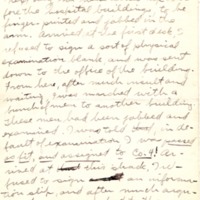 fore the hospital buildings to be
finger printed and jabbed in the
arm. Arrived at the first desk I
refused to sign a sort of physical
examination blank, and was sent
down to the office of the building.
From here, after much insult and
waiting I was marched with a
bunch of men to another building.
These men had been jabbed and
examined. I was told that, in de-
fault of examination, I was passed
as fit, and assigned to Co. 4!
at this shack, I re-
fused to sign an informa-
tion slip, and after much argu-